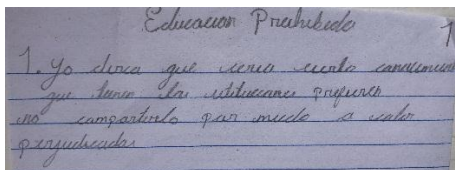 Educacion Prohibida 1
1. Yo diria que seria cierto conocimiento
que tienen las instituciones prefieren
no compartirlo por miedo a salir
perjudicados